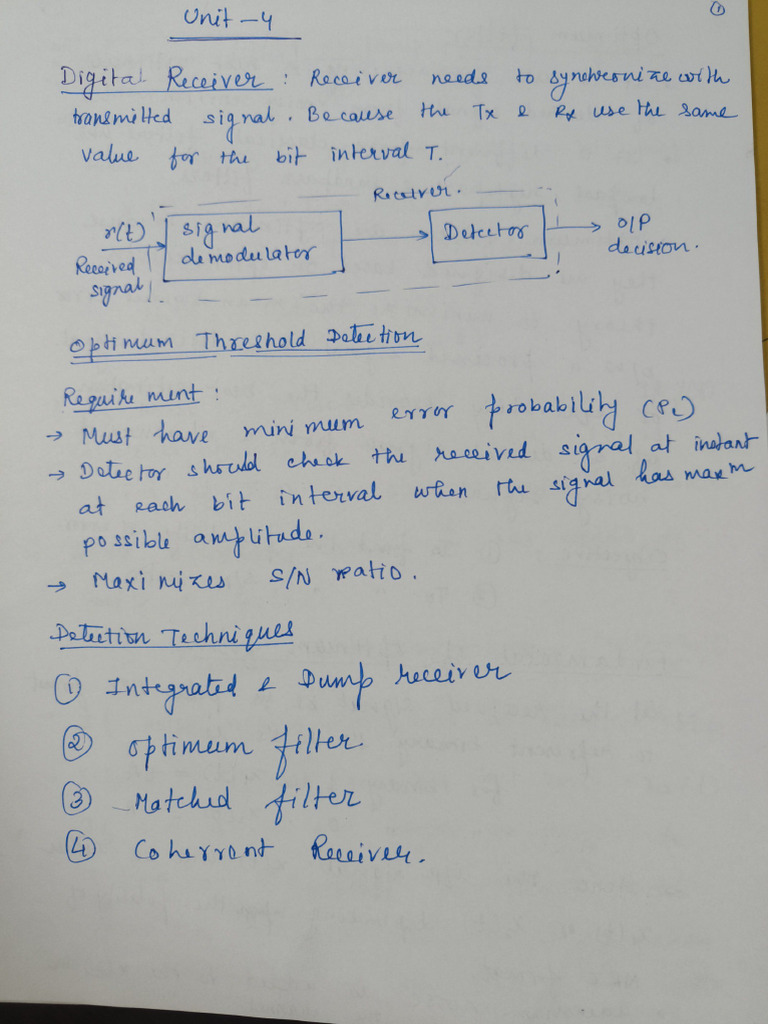 ①
Unit - 4
Digital Receiver : Receiver needs to synchronize with
transmitted signal. Because the Tx & Rx use the same
value for the bit interval T.
Receiver.
r(t)
Received
signal
signal
demodulator
Detector
O/P
decision.
Optimum Threshold Detection
Requirement :
→ Must have minimum error probability (Pe)
→ Detector should check the received signal at instant
at each bit interval when the signal has maxm
possible amplitude.
→ Maximizes S/N ratio.
Detection Techniques
① Integrated & Dump receiver
② Optimum filter
③ Matched filter
④ Coherrent Receiver.